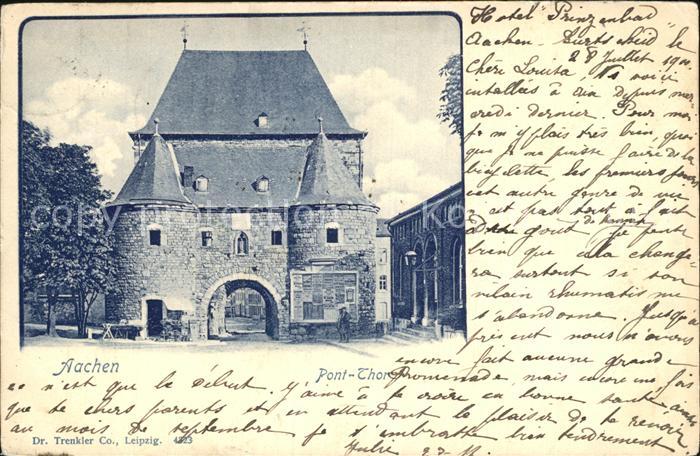 Hotel "Prinzenbad"
Aachen - Burtscheid le
28 Juillet 1901
Chère Louisa, Ns voici
installées à Aix depuis mer
credi dernier. Pour moi
je m'y plais très bien, quoi
que je ne puisse faire de la
bicyclette, les premiers jours
cet autre genre de vie
n'est pas tout à fait
de
goût, je pense
bien que cela change
ra, surtout si son
vilain rhumatis me
s'abandonne. Jusqu'à
présent nous n'avons
encore fait aucune grande
promenade, mais encore une fois
ce n'est que le début. J'aime à te croire en bonne santé ainsi
que tes chers parents et en attendant le plaisir de te revoir
au mois de septembre je t'embrasse bien tendrement.
Julie
Aachen
Pont-Thor
Dr. Trenkler Co., Leipzig. 4323
copyright protected